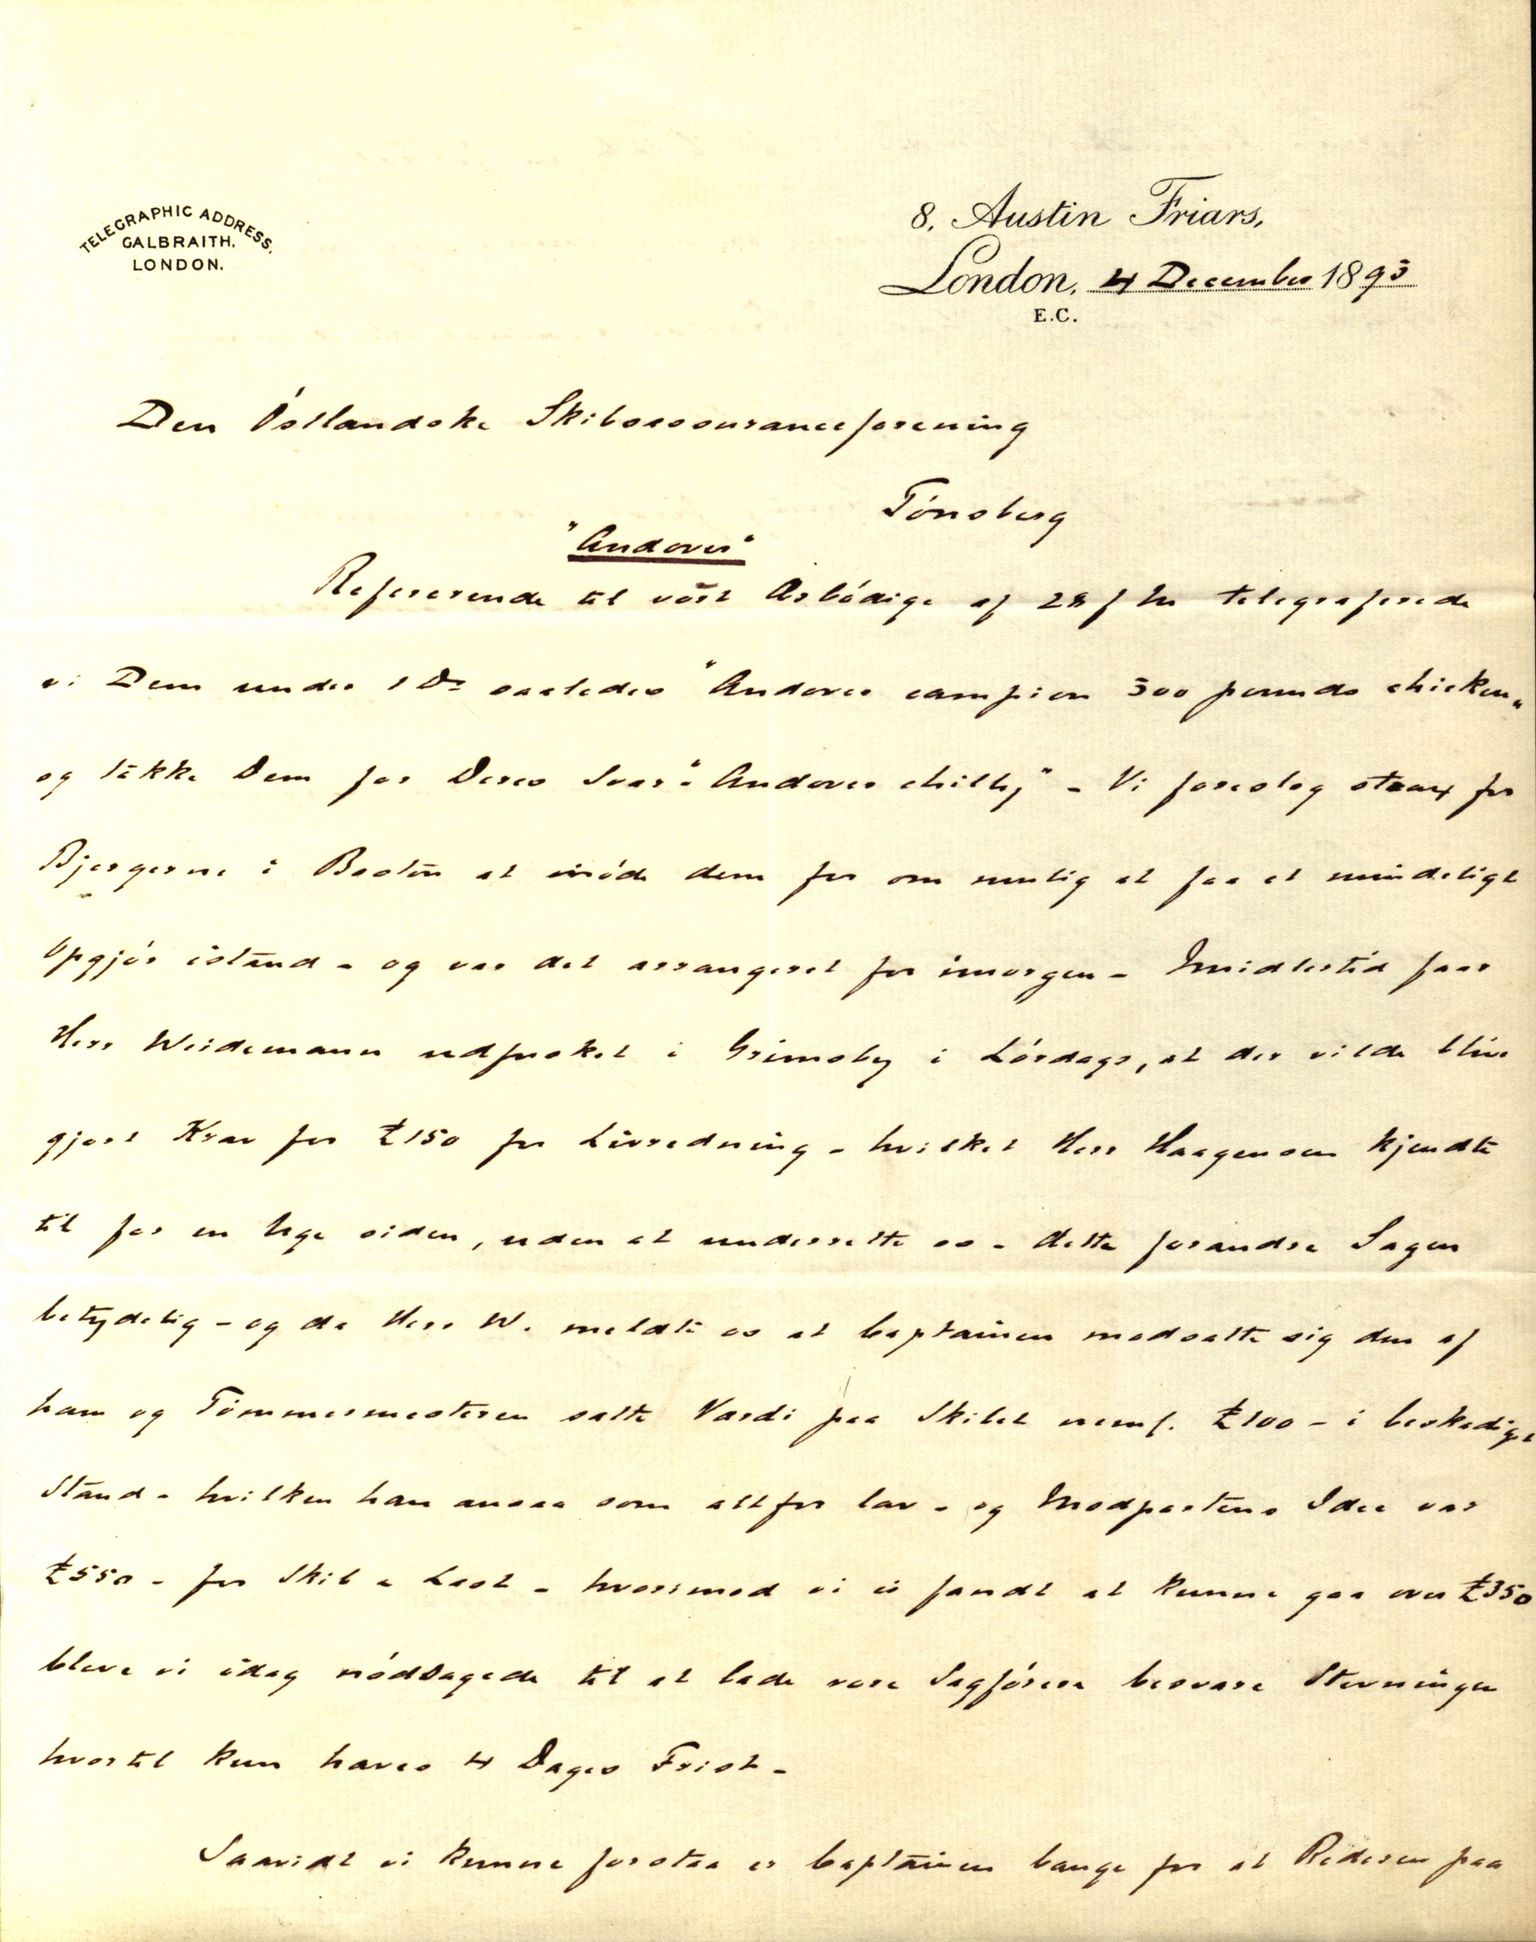 TELEGRAPHIC ADDRESS.
GALBRAITH.
LONDON.
8, Austin Friars,
London, 4 December 1893
E.C.
Den Östlandske Skibsassuranceforening
Tönsberg
"Andover"
Refererende til vort Ærbödige af 28 f m telegraferede
vi Dem under 1 Ds saaledes "Andover campion 500 pounds chicken"
og takke Dem for Deres Svar "Andover chilly" - Vi foreslog strax for
Bjergerne i Boston at möde dem for om mulig at faa et mindeligt
Opgjör istand - og var det arrangeret for imorgen - Imidlertid faar
Herr Weidemann udfusket i Grimsby i Lördags, at der vilde blive
gjort Krav for £150 for Livredning - hvilket Herr Haagensen kjendte
til for en Uge siden, uden at underrette os - dette forandre Sagen
betydelig - og da Herr W. meldte os at Captainen modsatte sig den af
ham og Tömmermesteren satte Værdi paa Skibet neml. £100 - i beskadiget
Stand - hvilken han ansaa som altfor lav - og Modpartens Idee var
£550 - for Skib & Last - hvorimod vi ei fandt at kunne gaa over £350
bleve vi idag nödsagede til at lade vore Sagförere besvare Stevningen
hvortil kun haves 4 Dages Frist -
Saavidt vi kunne forstaa er Captainen bange for at Rederen paa